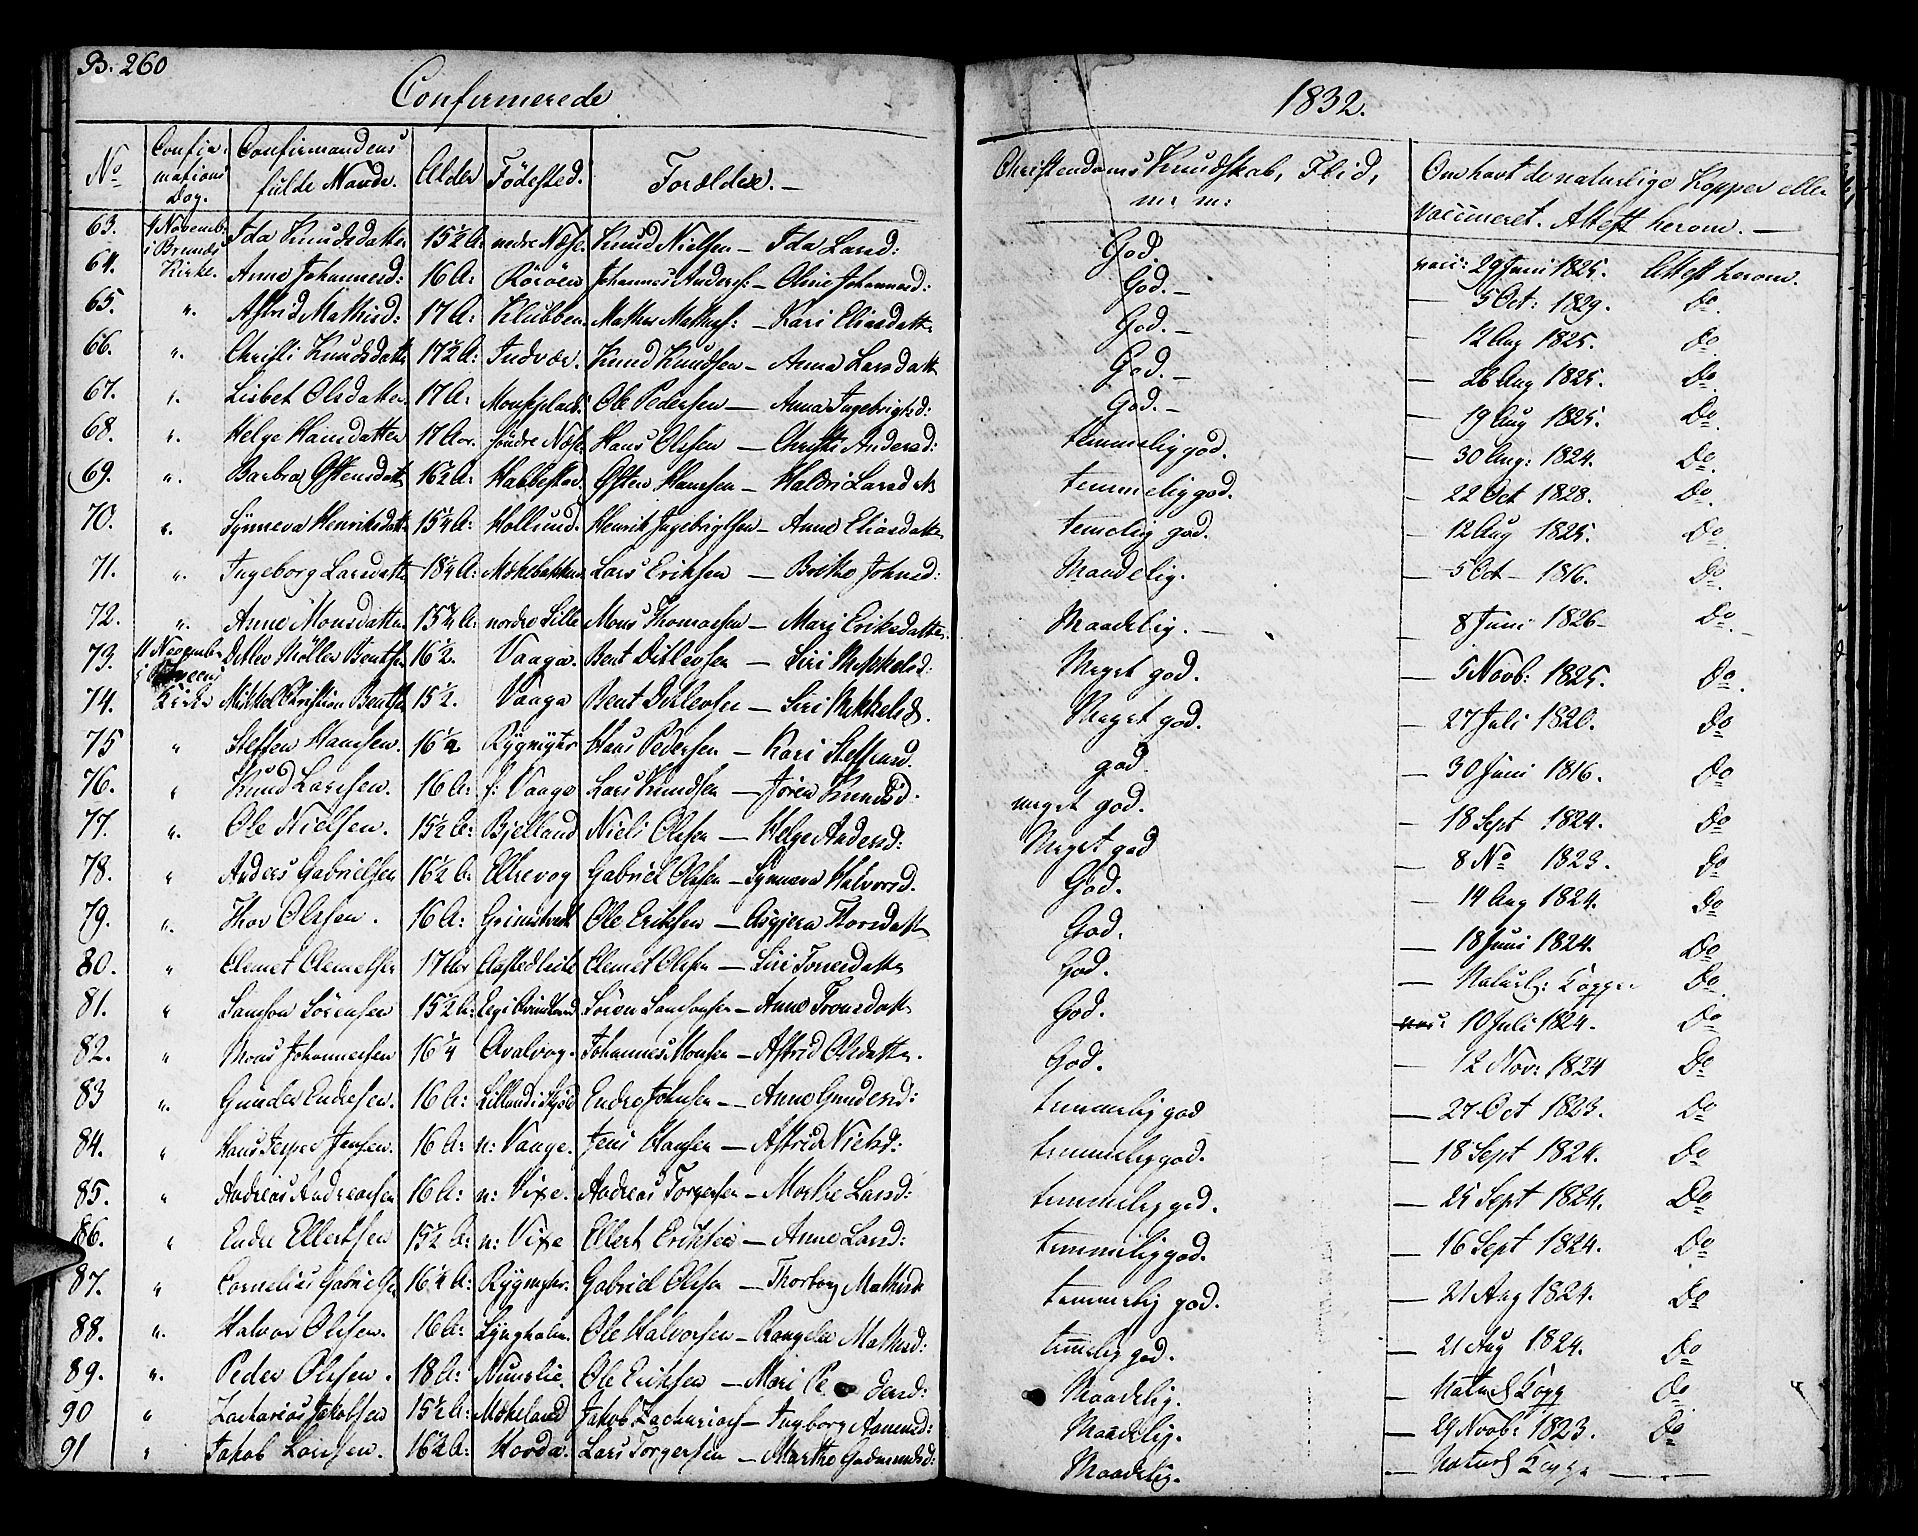 B. 260
Confirmerede
1832.
No
Confirmations Dag.
Confirmandens fulde Navne.
Alder
Födested.
Forældre. —
Christendoms Kundskab, Flid, m: m:
Om havt de naturlige Kopper eller vaccineret. Attest herom. —
63. 4 Novemb: i Bremnes Kirke. Ida Knudsdatter 15½ A: nedre Næse. Knud Nielsen — Ida Larsd: God. vacc: 29 Juni 1825. Attest herom.
64. Anne Johannesd: 16 A: Röröen Johannes Anders: — Oline Johannesd: God. — — 5 Oct: 1829. Do.
65. " Astrid Mathisd: 17 A: Klubben. Mathis Mathis: — Kari Eliasdatt: God. — — 12 Aug 1825. Do
66. " Christi Knudsdatter 17½ A: Indvær. Knud Knudsen — Anna Larsdatt God. — — 26 Aug 1825. Do
67. " Lisbet Olsdatter 17 A: Ole Pedersen — Anna Ingebrigtsd: God. — — 19 Aug 1825. Do
68. " Helge Hansdatter 17 Aar. söndre Næse Hans Olsen — Christi Andersd: temmelig god. — 30 Aug: 1824. Do
69. " Barbra Östensdatt 16½ A: Östen Hansen — Larsd temmelig god. — 22 Oct 1828. Do
70. " Synneva Henriksdatt 15¼ A: Hollund. Henrik Ingebrigtsen — Anne Eliasdatter temelig god. — 12 Aug 1825. Do
71. " Ingeborg Larsdatter 18¼ A: Lars Eriksen — Johnsd: Maadelig. — 5 Oct — 1816. Do
72. " Anne Monsdatter 15¾ A: nordre Lille Mons Thomassen — Mari Eriksdatter. Maadelig. — — 8 Juni 1826 — Do. —
73. 11 November i Kirke Ditlev Möller Bentsen 16½. Vaage. Bent Ditlevsen — Siri Mikkelsd: Meget god. — 5 Novb: 1825. Do.
74. Mikkel Christian Bentsen 15½. Vaage Bent Ditlevsen — Siri Mikkelsd. Meget god. — 27 Juli 1820. Do
75 " Steffen Hansen. 16½ Rygmyhr Hans Pedersen — Kari Steffensd. god. — 30 Juni 1816. Do
76. " Knud Larssen. 16 A: s: Vaage Lars Knudsen — Jören Knudsd. meget god. — 18 Sept 1824. Do
77. " Ole Nielsen. 15½ A: Bjelland Niels Olsen — Helge Andersd: Meget god — 8 No 1823. Do
78. " Anders Gabrielsen 16½ A. Eltrevog Gabriel Olsen — Synneva Halvorsd. God. — 14 Aug 1824. Do
79. " Thor Olssen. 16 A: Grimstvedt Ole Eriksen — Thorsdatt God. — 18 Juni 1824. Do
80. " Clemet Clemetsen 17 Aar Clemet Olssen — Siri Torresdatter God. — Naturl: Kopper Do
81. " Samson Sörensen 15½ A: Sören Samsonsen — Anne Tronsdatter God. 10 Juli 1824. Do
82. " Mons Johannessen 16¼ Avalvog. Johannes Monsen — Astrid Olsdatter. God. — 12 Nov: 1824 Do
83 " Gunder Endresen. 16 A: Endre Johnsen — Anne Gundersd: temmelig god — 27 Oct 1823. Do
84. " Hans Jesper Jensen. 16 A: n: Vaage. Jens Hansen — Astrid Nielsd: temmelig god. — 18 Sept 1824. Do
85. " Andreas Andreassen 16 A: n: Vixe. Andreas Torgersen — Marthe Larsd: temmelig god. — 25 Sept 1824. Do
86. " Endre Ellertsen 15½ A: n: Vixe Ellert Eriksen — Anne Larsd: temmelig god. — 16 Sept 1824. Do
87. " Cornelius Gabrielsen 16¼ A: Rygmyhr. Gabriel Olssen — Thorborg Mathisd temmelig god. — 21 Aug 1824. Do
88. " Halvor Olssen. 16 A: Lyngholm. Ole Halvorsen — Rangela Mathisd: temelig god. — 21 Aug 1824. Do
89. " Peder Olssen. 18 A: Ole Eriksen — Mari Pedersd: Maadelig. — Naturl Kopp Do
90 " Zacharias Jakobsen 15½ A: Mækeland Jakob Zachariass: — Ingborg Aamunds: Maadelig. — 29 Novb: 1823. Do
91 " Jakob Larssen. 16½ A: Hovda. Lars Torgersen — Marthe Gudmundsd: Maadelig. — Naturl Kopp —